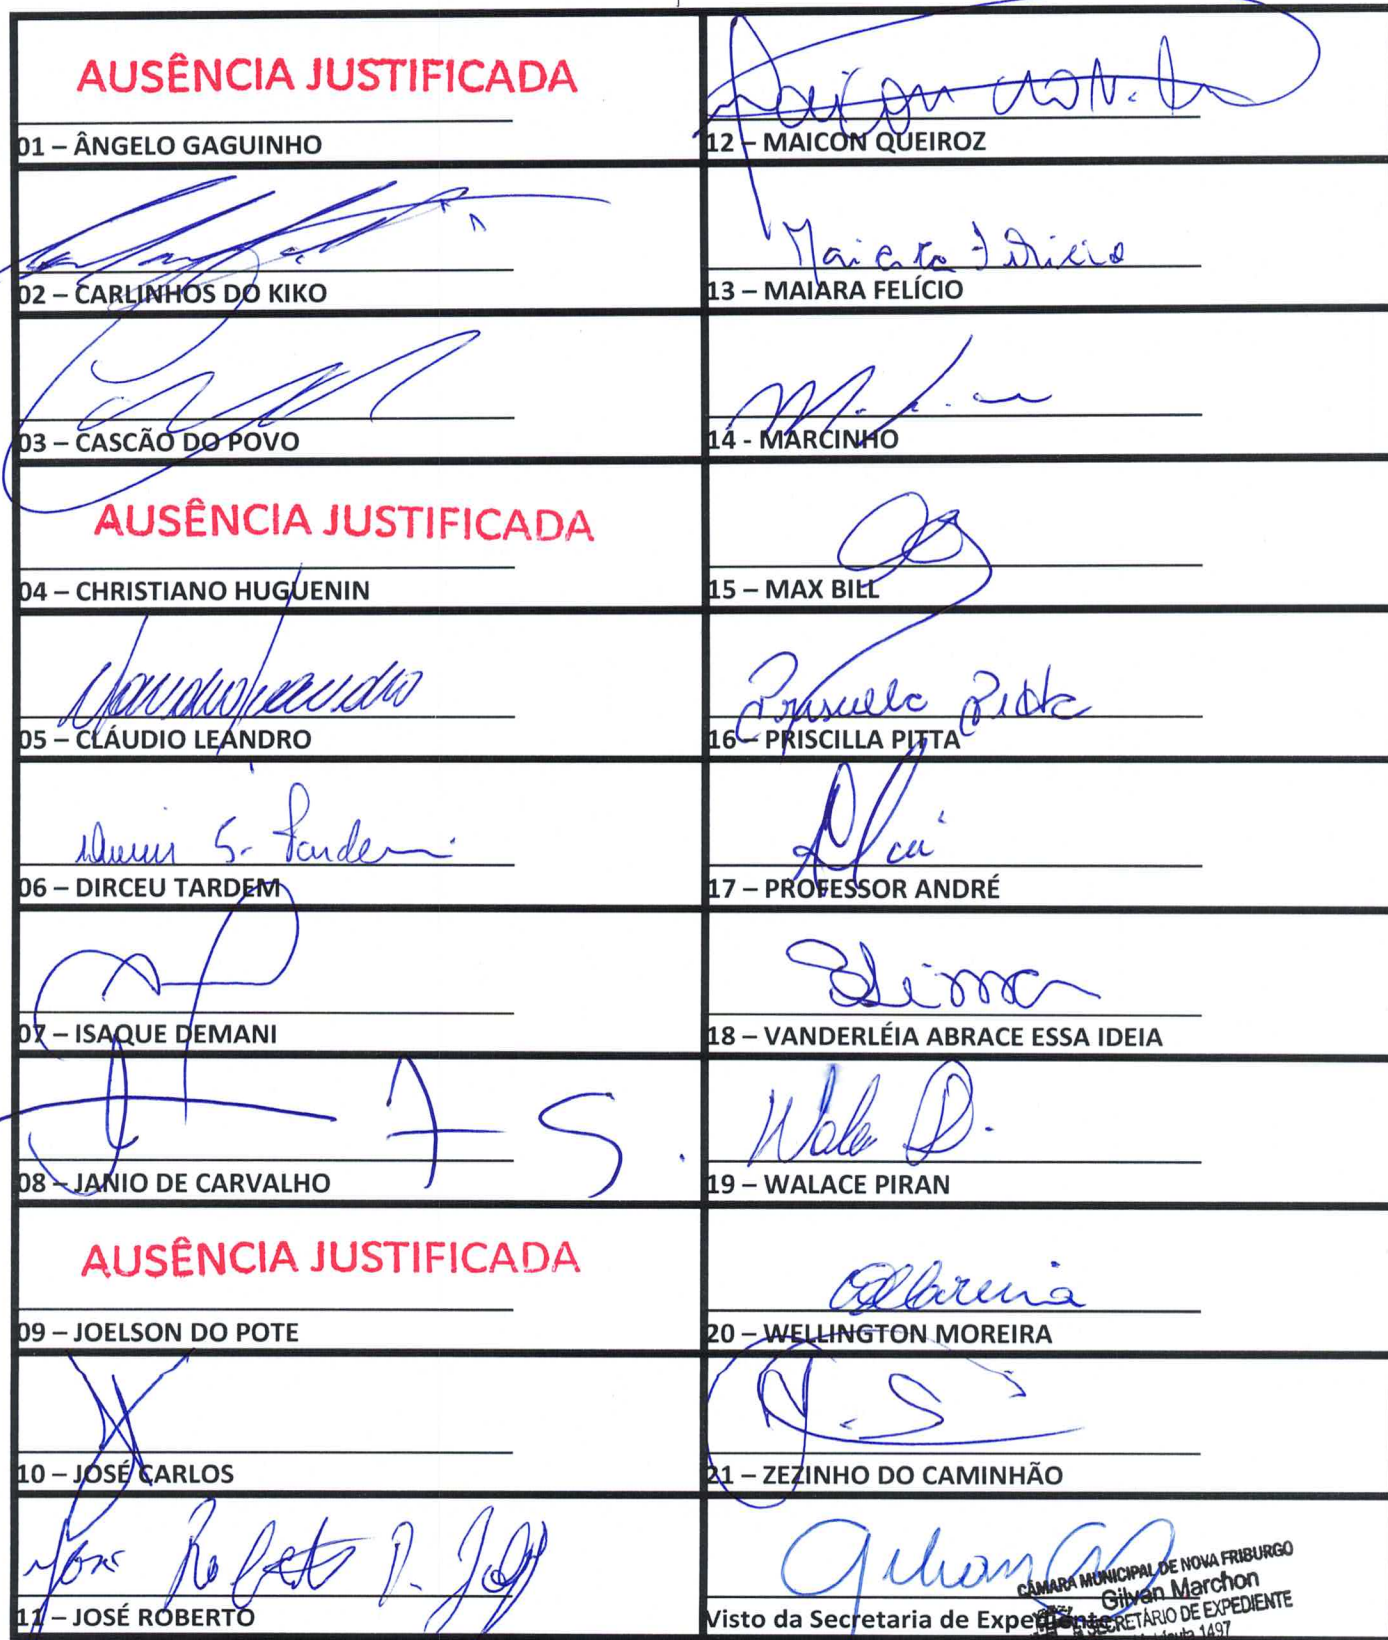 AUSÊNCIA JUSTIFICADA
01 – ÂNGELO GAGUINHO
02 – CARLINHOS DO KIKO
03 – CASCÃO DO POVO
AUSÊNCIA JUSTIFICADA
04 – CHRISTIANO HUGUENIN
05 – CLÁUDIO LEANDRO
06 – DIRCEU TARDEM
07 – ISAQUE DEMANI
08 – JANIO DE CARVALHO
AUSÊNCIA JUSTIFICADA
09 – JOELSON DO POTE
10 – JOSÉ CARLOS
José Roberto
11 – JOSÉ ROBERTO
Maicon
12 – MAICON QUEIROZ
Maiara Felício
13 – MAIARA FELÍCIO
14 - MARCINHO
15 – MAX BILL
Priscilla Pitta
16 – PRISCILLA PITTA
17 – PROFESSOR ANDRÉ
18 – VANDERLÉIA ABRACE ESSA IDEIA
19 – WALACE PIRAN
20 – WELLINGTON MOREIRA
21 – ZEZINHO DO CAMINHÃO
CÂMARA MUNICIPAL DE NOVA FRIBURGO
Gilvan Marchon
SECRETÁRIO DE EXPEDIENTE
1497
Visto da Secretaria de Expediente